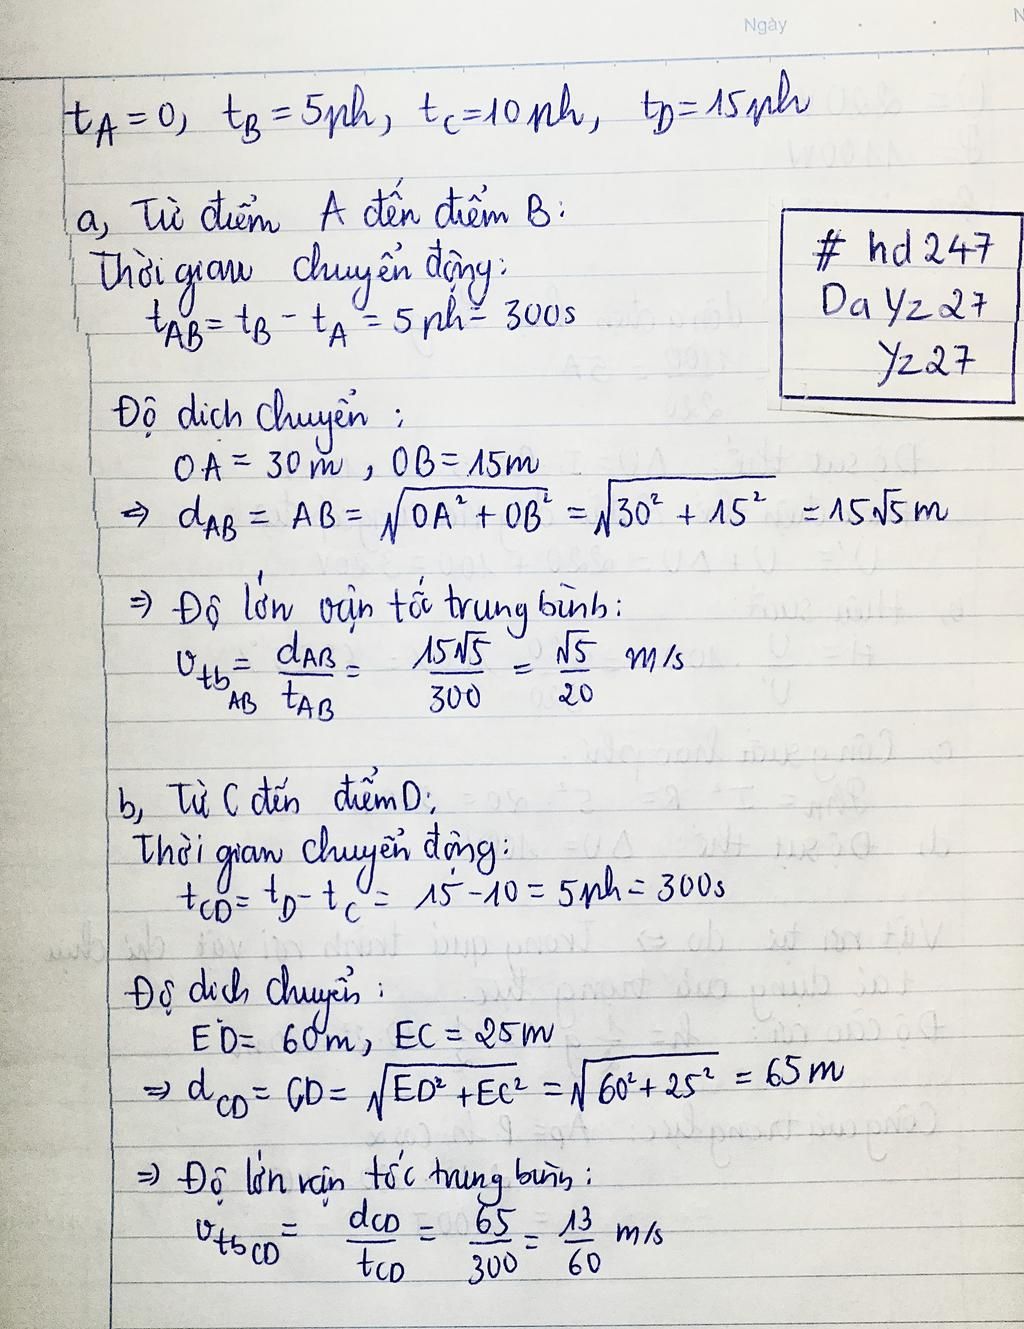 Ngày
t_A = 0, t_B = 5ph, t_C = 10ph, t_D = 15ph
a, Từ điểm A đến điểm B:
Thời gian chuyển động:
t_AB = t_B - t_A = 5ph = 300s
# hd247
DaYz27
Yz27
Độ dich chuyển:
OA = 30m, OB = 15m
⇒ d_AB = AB = √(OA² + OB²) = √(30² + 15²) = 15√5 m
⇒ Độ lớn vận tốc trung bình:
v_tb_AB = d_AB/t_AB = 15√5/300 = √5/20 m/s
b, Từ C đến điểm D:
Thời gian chuyển động:
t_CD = t_D - t_C = 15 - 10 = 5ph = 300s
Độ dich chuyển:
ED = 60m, EC = 25m
⇒ d_CD = CD = √(ED² + EC²) = √(60² + 25²) = 65m
⇒ Độ lớn vận tốc trung bình:
v_tb_CD = d_CD/t_CD = 65/300 = 13/60 m/s